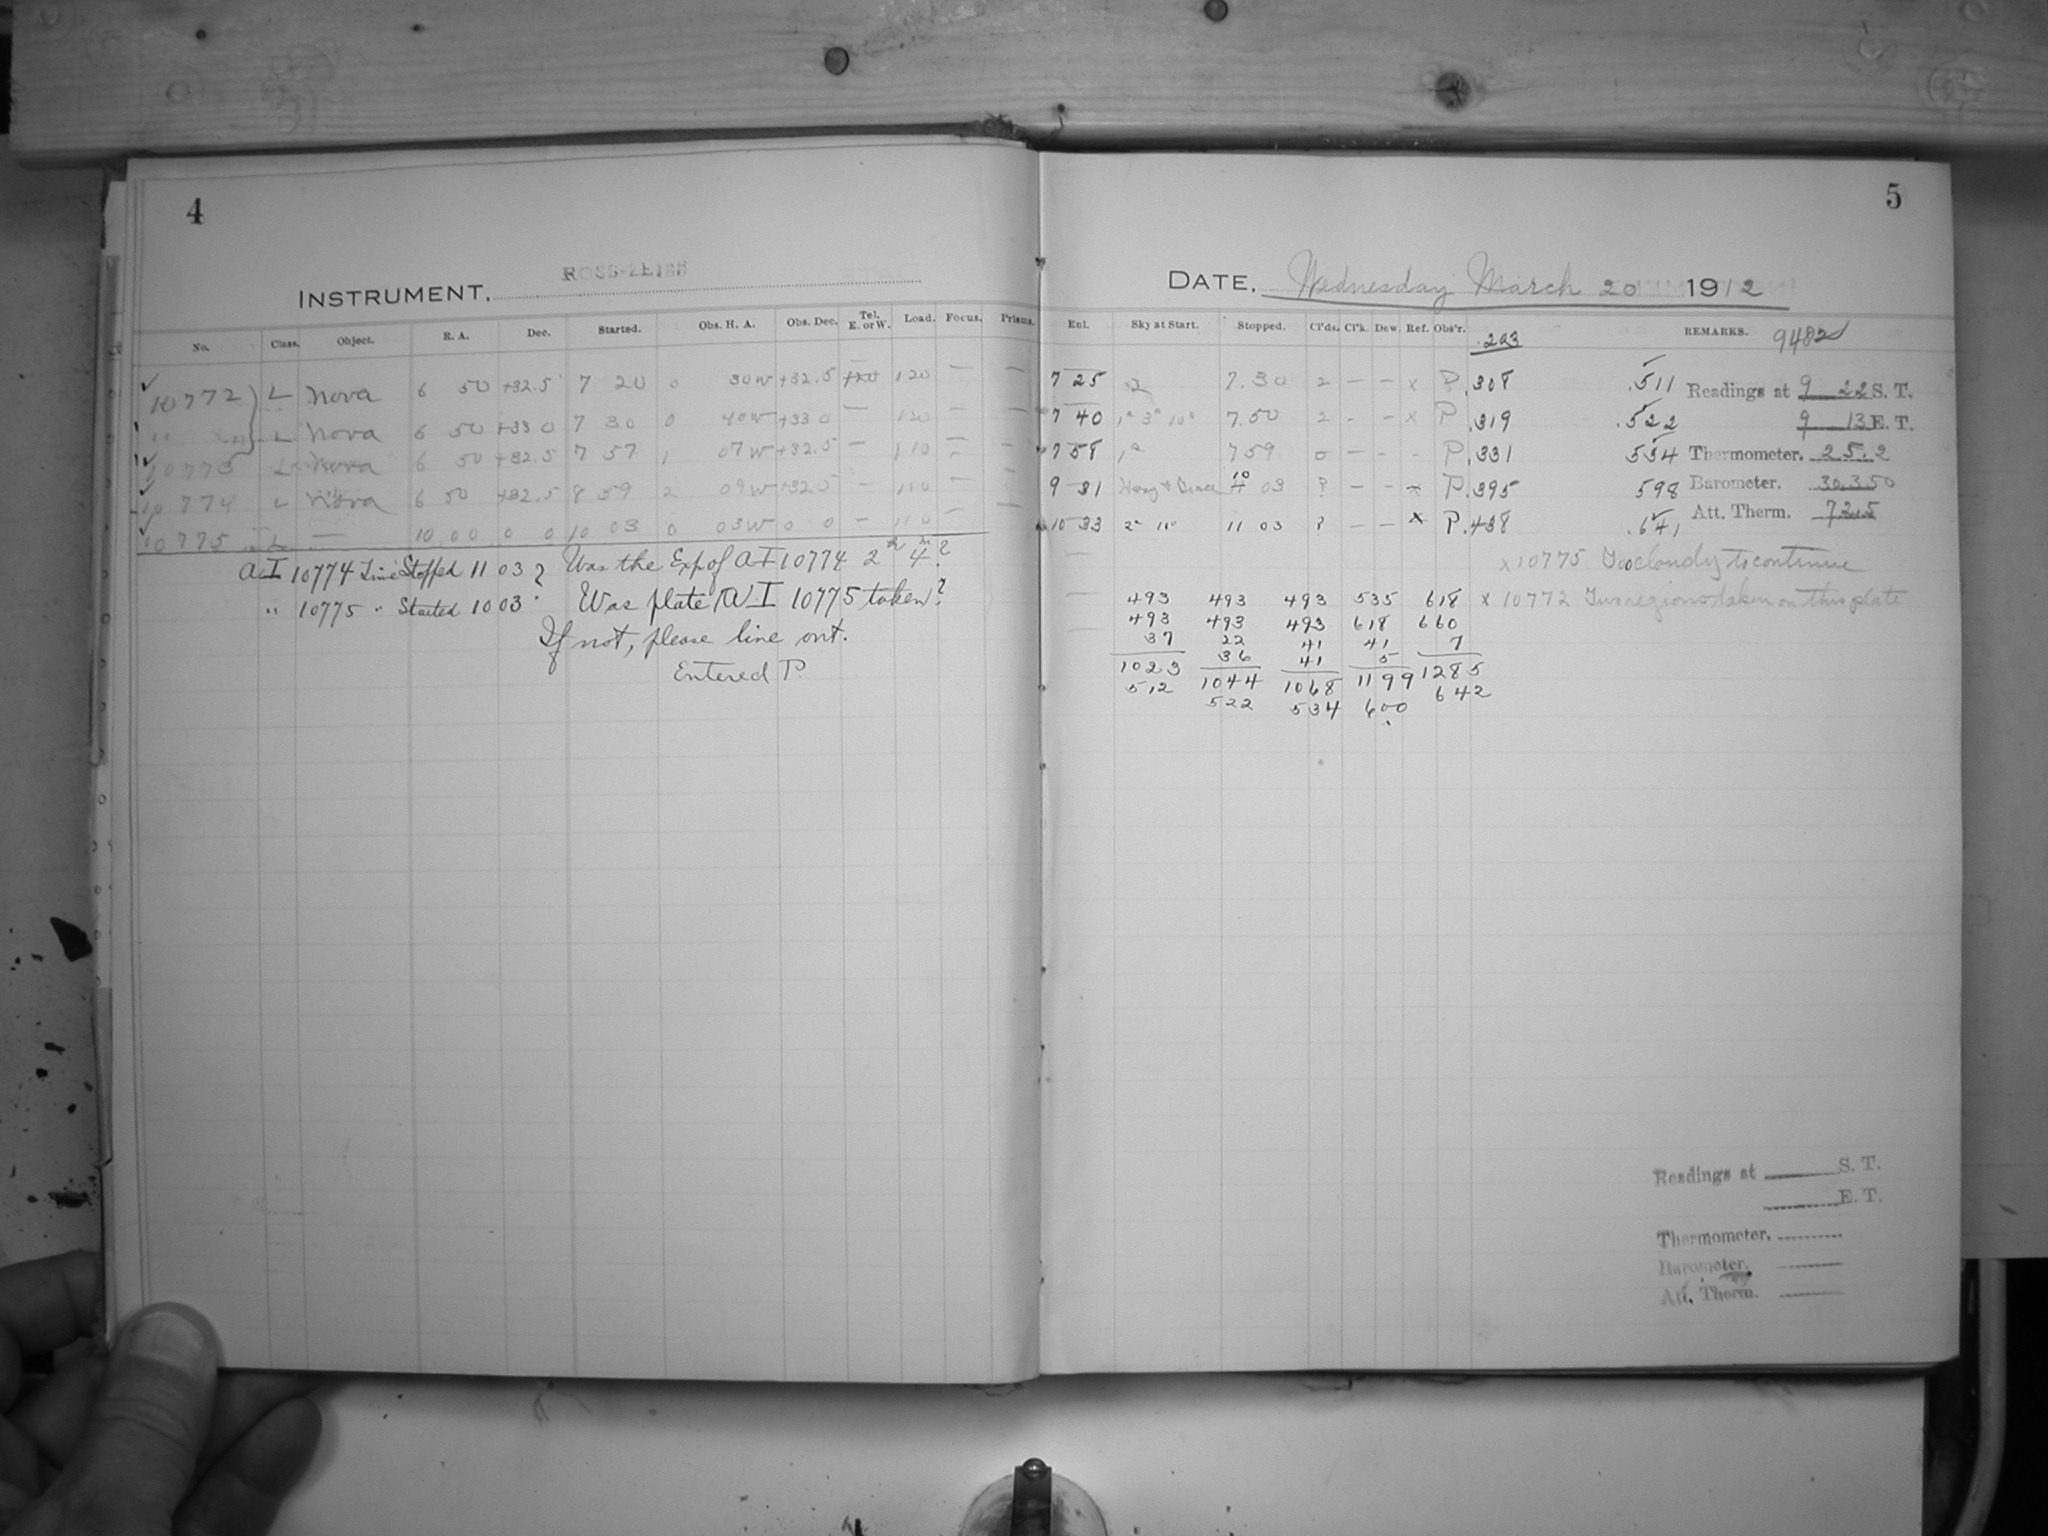 4
INSTRUMENT, ROSS-ZEISS
No. Class. Object. R. A. Dec. Started. Obs. H. A. Obs. Dec. Tel. E. or W. Load. Focus. Prisms.
10772 L Nova 6 50 +32.5 7 20 0 30W +32.5 120 — —
L Nova 6 50 +33 0 7 30 0 40W +33 0 — 120 — —
10773 L Nova 6 50 +32.5 7 57 1 07W +32.5 — 110 — —
10774 L Nova 6 50 +32.5 8 59 2 09W +32.5 — 110 — —
10775 L — 10 00 0 0 10 03 0 03W 0 0 — 110 — —
AI 10774 Time Stopped 11 03? Was the Exp of AI 10774 2h 4m?
" 10775 " Started 10 03 Was plate AI 10775 taken?
If not, please line out.
Entered P.
5
DATE, Wednesday March 20 1912
Enl. Sky at Start. Stopped. Cl'ds. Cl'k. Dew. Ref. Obs'r. REMARKS.
.203 9482
7 25 2 7.30 2 — — x P .308 .511
7 40 1° 3° 10° 7.50 2 - - x P .319 .522
7 58 1° 7 59 0 — — - P .331 534
9 31 10 03 ? — — x P .395 598
10 33 2° 11° 11 03 ? — — x P .438 .641
Readings at 9 22 S. T.
9 13 E. T.
Thermometer. 25.2
Barometer. 30.350
Att. Therm. 72.5
x 10775 Too cloudy to continue
x 10772 Two regions taken on this plate
493 493 493 535 618
493 493 493 618 660
37 22 41 41 7
36 41 5
1023 1044 1068 1199 1285
512 522 534 600 642
Readings at S. T.
E. T.
Thermometer.
Barometer.
Att. Therm.